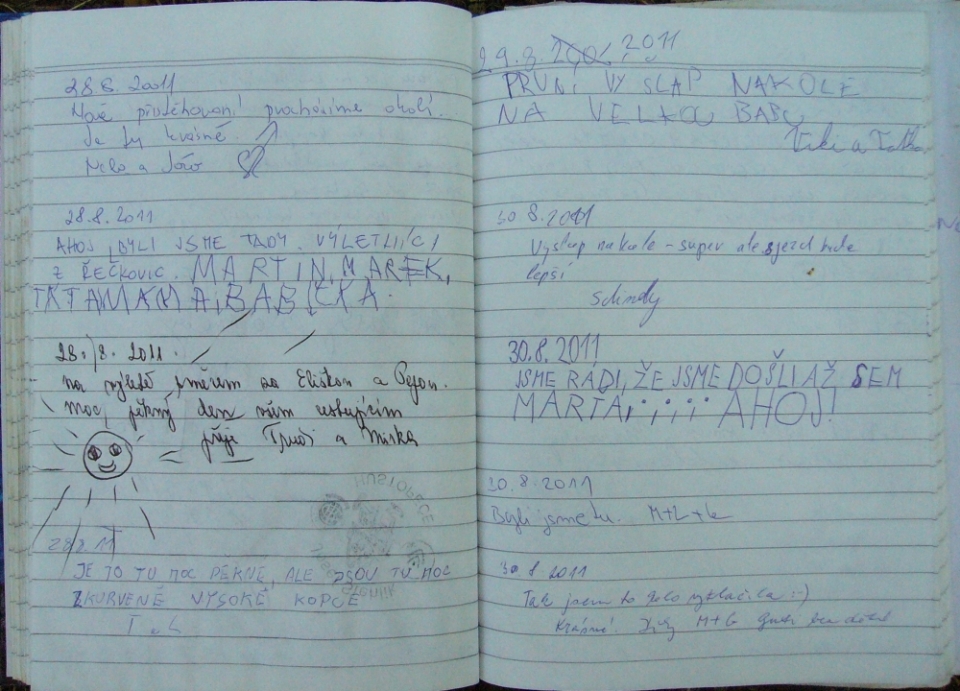 28.8. 2011
Nově přistěhovaní procházíme okolí.
Je tu krásně.
28.8.2011
AHOJ, BYLI JSME TADY. VÝLETNÍCI
Z ŘEČKOVIC. MARTIN, MAREK,
TÁTA MÁMA, BABIČKA.
28. 8. 2011.
na výletě směrem za Eliškou a Pepou.
moc pěkný den všem
přeje a Mirka
28.8.11
JE TO TU MOC PĚKNÉ, ALE JSOU TU MOC
ZKURVENĚ VYSOKÉ KOPCE
HUSTOPEČE
29.8. 2011
PRVNÍ VÝŠLAP NA KOLE
NA VELKOU BABU
30 8.2011
Výstup na kole - super ale sjezd bude
lepší
30.8.2011
JSME RÁDI, ŽE JSME DOŠLI AŽ SEM
MARTA AHOJ!
30.8.2011
Byli jsme tu. M+L+K
30.8 2011
Tak jsem to vytlačila :-)
Krásné! M+G